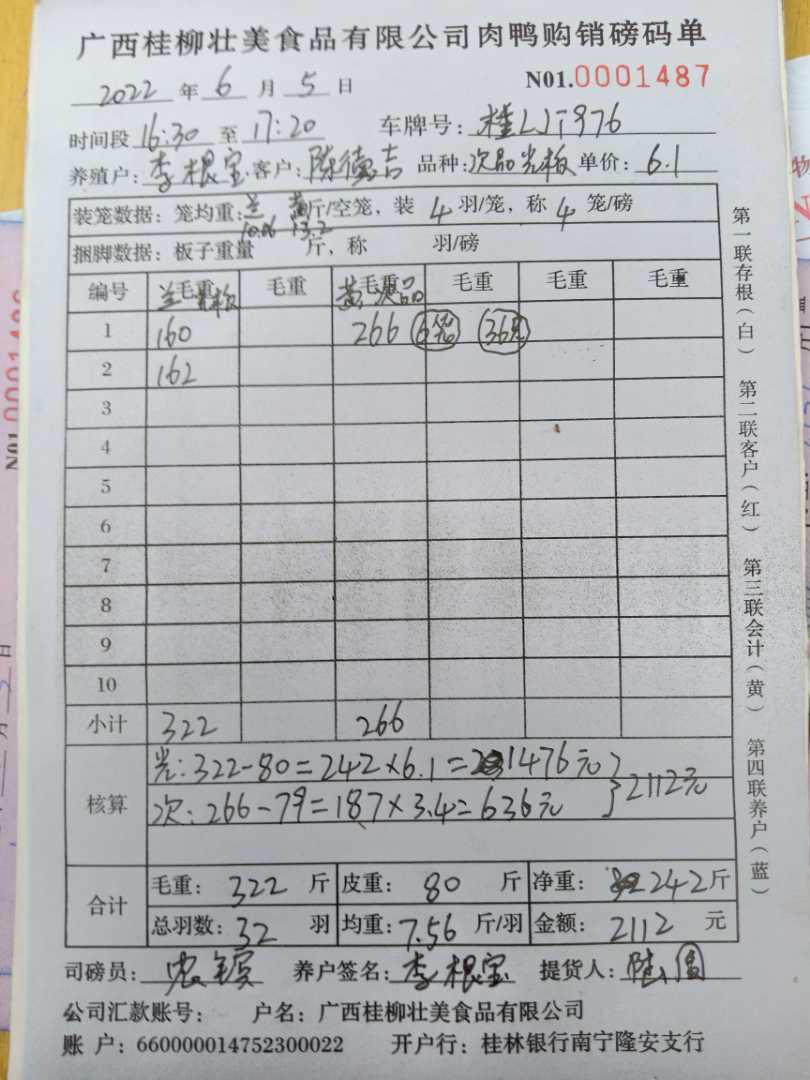 广西桂柳壮美食品有限公司肉鸭购销磅码单
2022 年 6 月 5 日 N01.0001487
时间段 16:30 至 17:20 车牌号: 桂LJT976
养殖户: 李根宝 客户: 陈德吉 品种: 次品光板 单价: 6.1
装笼数据: 笼均重: 兰 黄 斤/空笼, 装 4 羽/笼, 称 4 笼/磅
10.06 13.2
捆脚数据: 板子重量 斤, 称 羽/磅
编号 毛重 毛重 毛重 毛重 毛重 毛重
兰 光板 黄 次品
1 160 266 6笼 36只
2 162
3
4
5
6
7
8
9
10
小计 322 266
核算
光: 322-80=242×6.1=1476元
次: 266-79=187×3.4=636元
}2112元
合计
毛重: 322 斤 皮重: 80 斤 净重: 242 斤
总羽数: 32 羽 均重: 7.56 斤/羽 金额: 2112 元
司磅员: 养户签名: 李根宝 提货人:
公司汇款账号: 户名: 广西桂柳壮美食品有限公司
账 户: 660000014752300022 开户行: 桂林银行南宁隆安支行
第一联存根(白) 第二联客户(红) 第三联会计(黄) 第四联养户(蓝)